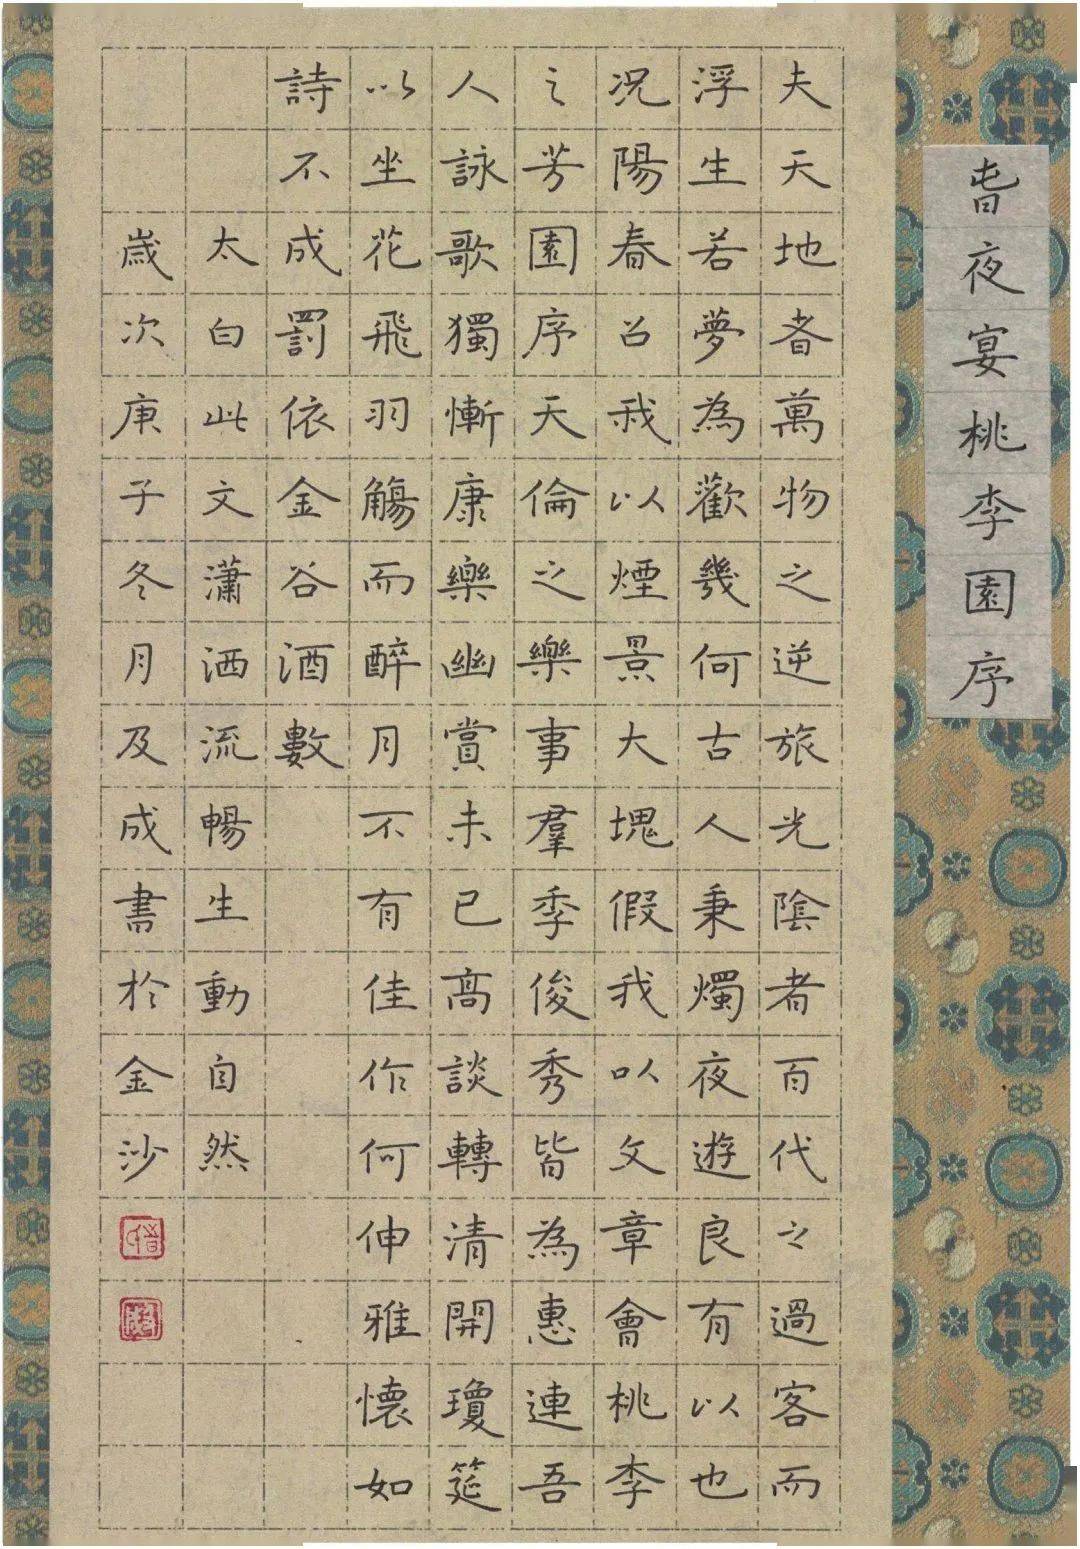 旾夜宴桃李園序
夫天地者萬物之逆旅光陰者百代之過客而
浮生若夢為歡幾何古人秉燭夜遊良有以也
况陽春召我以煙景大塊假我以文章會桃李
之芳園序天倫之樂事羣季俊秀皆為惠連吾
人詠歌獨慚康樂幽賞未已髙談轉清開瓊筵
以坐花飛羽觴而醉月不有佳作何伸雅懷如
詩不成罰依金谷酒數
太白此文瀟洒流暢生動自然
歲次庚子冬月及成書於金沙